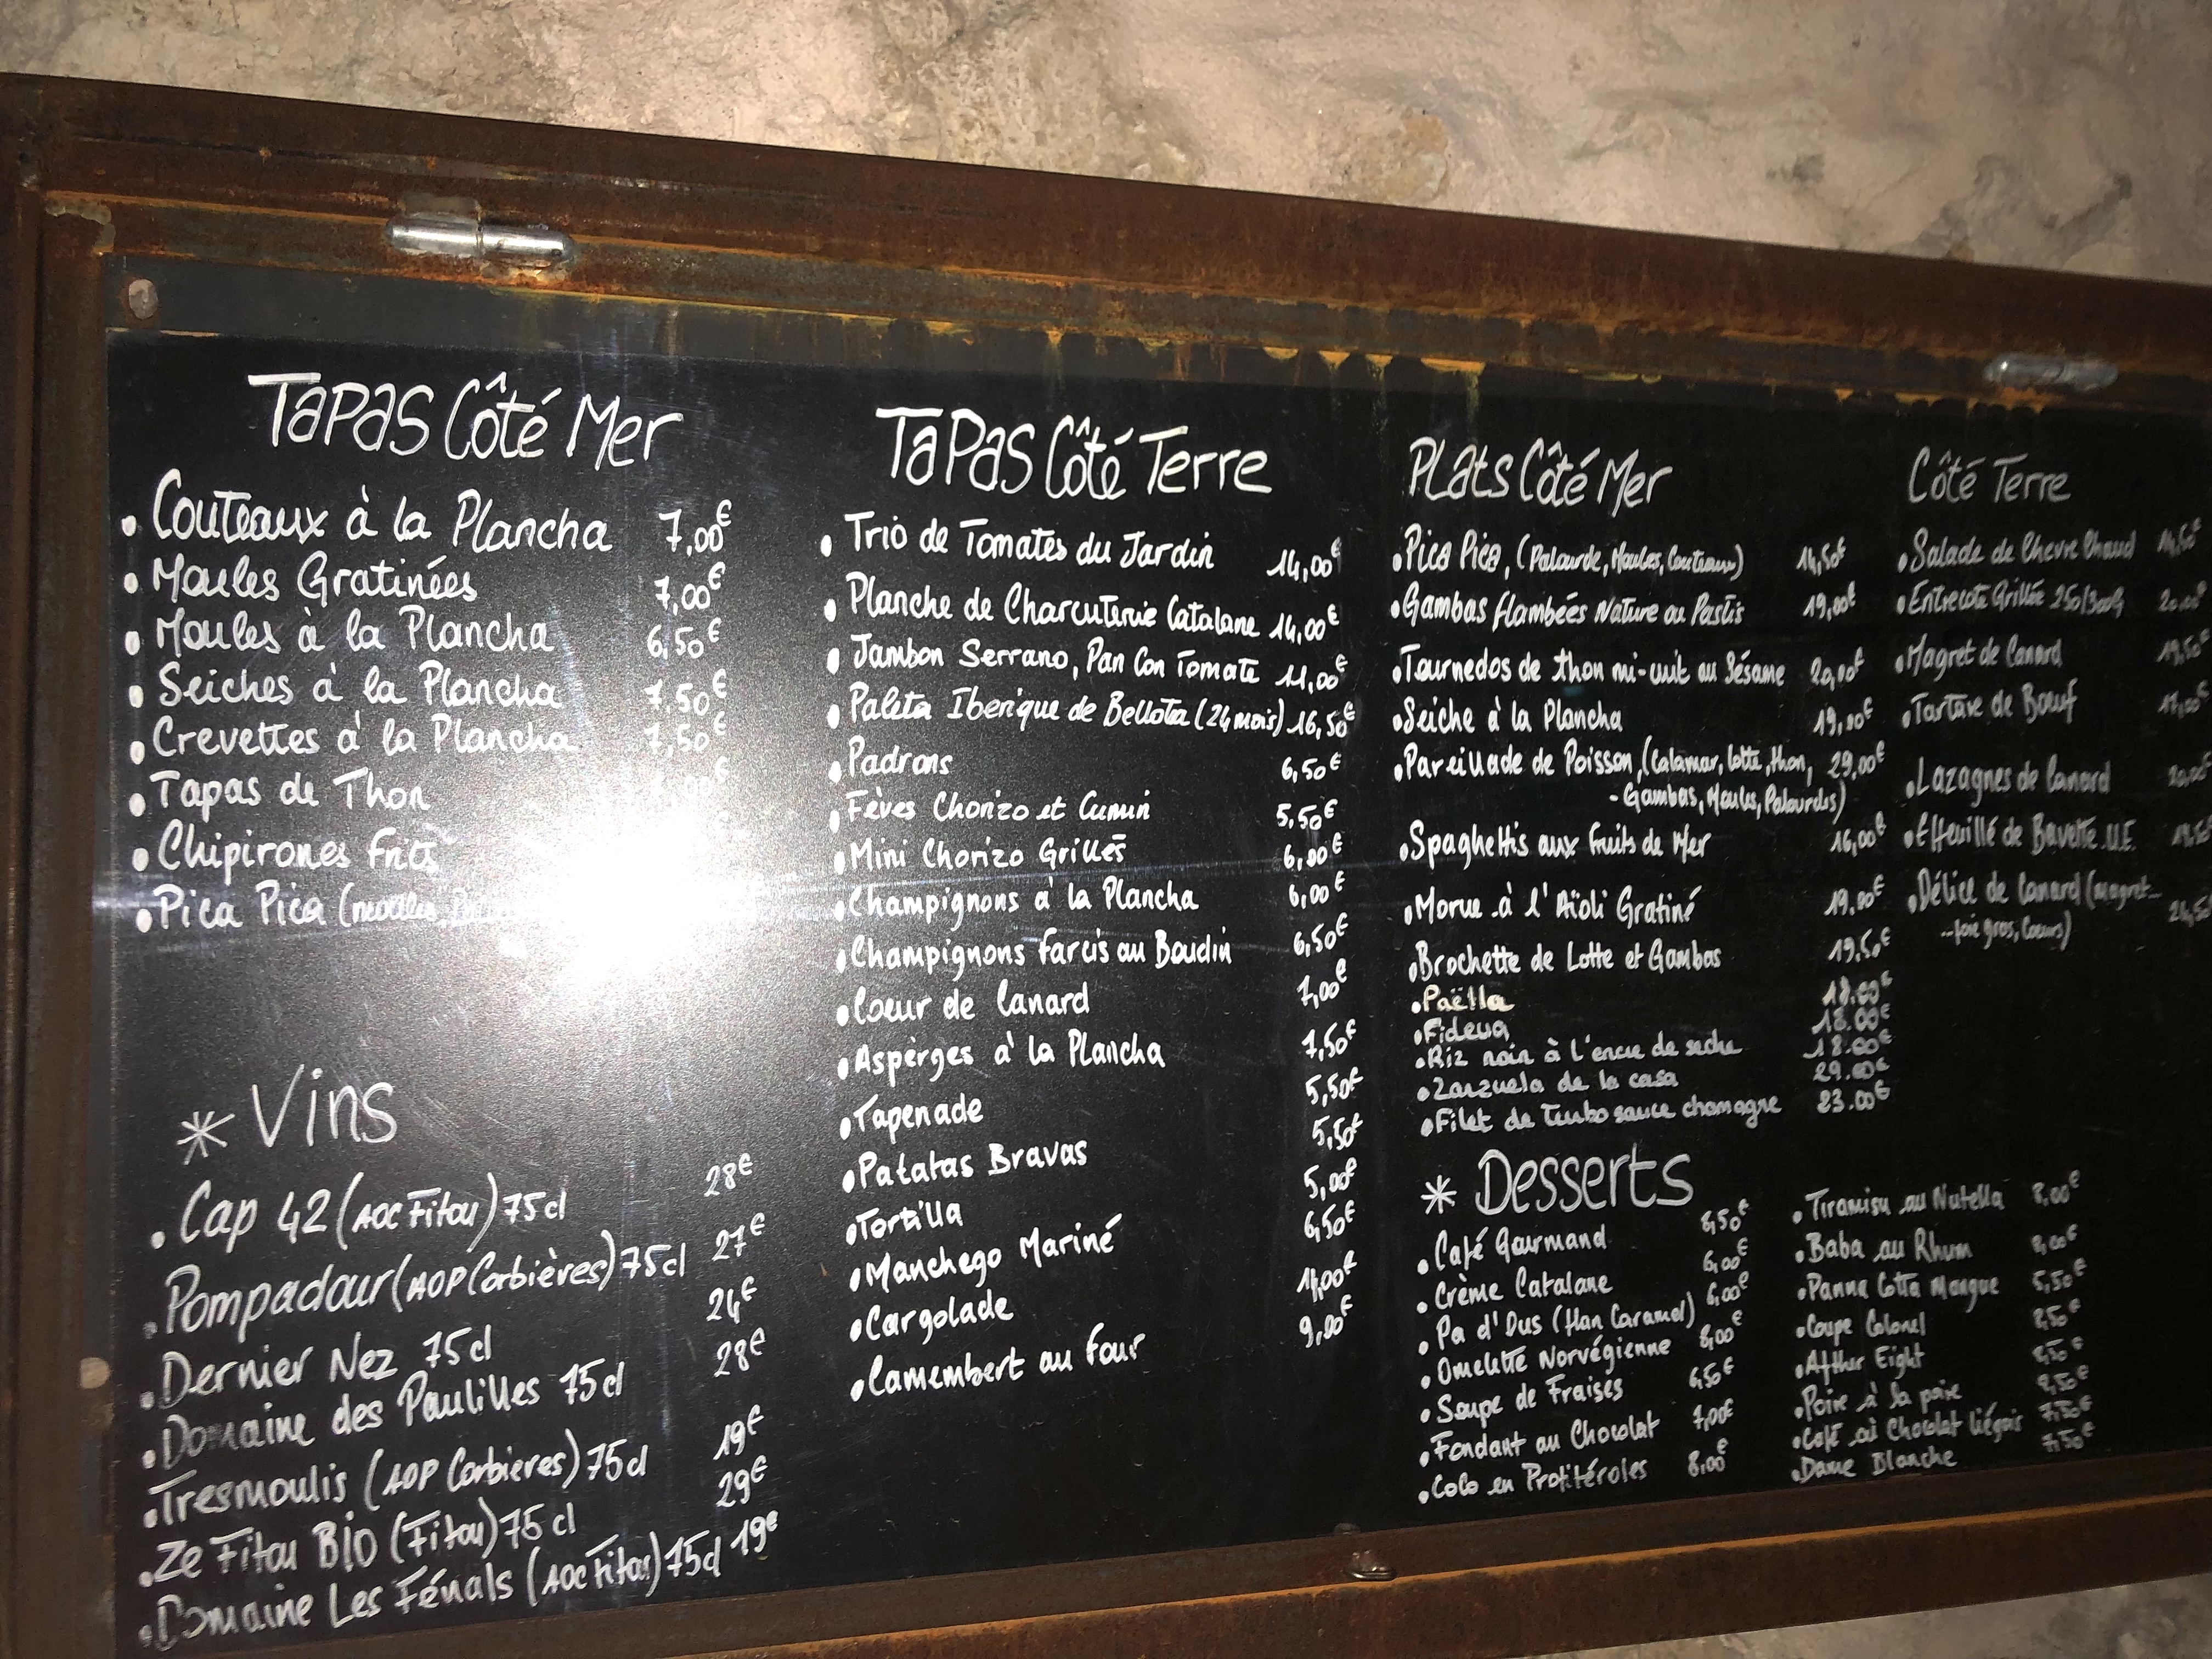 TAPAS Côté Mer
• Couteaux à la Plancha 7,00€
• Moules Gratinées 7,00€
• Moules à la Plancha 6,50€
• Seiches à la Plancha 7,50€
• Crevettes à la Plancha 7,50€
• Tapas de Thon
• Chipirones
• Pica Pica
* Vins
• Cap 42 (AOC Fitou) 75cl 28€
• Pompadour (AOP Corbières) 75cl 27€
• Dernier Nez 75cl 24€
• Domaine des Paulilles 75cl 28€
• Tresmoulis (AOP Corbieres) 75cl 19€
• Ze Fitou BiO (Fitou) 75cl 29€
• Domaine Les Fénals (AOC Fitou) 75cl 19€
TAPAS Côté Terre
• Trio de Tomates du Jardin 14,00€
• Planche de Charcuterie Catalane 14,00€
• Jambon Serrano, Pan Con Tomate 11,00€
• Paleta Iberique de Bellota (24 mois) 16,50€
• Padrons 6,50€
• Fèves Chorizo et Cumin 5,50€
• Mini Chorizo Grillés 6,00€
• Champignons à la Plancha 6,00€
• Champignons farcis au Boudin 6,50€
• Coeur de Canard 7,00€
• Asperges à la Plancha 7,50€
• Tapenade 5,50€
• Patatas Bravas 5,50€
• Tortilla 5,00€
• Manchego Mariné 6,50€
• Cargolade 14,00€
• Camembert au four 9,00€
Plats Côté Mer
• Pica Pica, (Palourde, Moules, Couteaux) 14,50€
• Gambas flambées Nature au Pastis 19,00€
• Tournedos de thon mi-cuit au Sésame 20,00€
• Seiche à la Plancha 19,00€
• Pareillade de Poisson, (Calamar, Lotte, thon, 29,00€
- Gambas, Moules, Palourdes)
• Spaghettis aux fruits de Mer 16,00€
• Morue à l'Aïoli Gratiné 19,00€
• Brochette de Lotte et Gambas 19,50€
• Paëlla 18.00€
• Fideua 18.00€
• Riz noir à l'encre de seche 18.00€
• Zarzuela de la casa 29.00€
• Filet de Turbo sauce chamagne 23.00€
Côté Terre
• Salade de Chevre Chaud
• Entrecote Grillée 250/300G
• Magret de Canard 19,50
• Tartare de Bœuf
• Lazagnes de Canard 20,00€
• Effeuillé de Bavette U.E.
• Délice de Canard (magret...
...foie gras, Coeurs)
* Desserts
• Café Gourmand 8,50€
• Crème Catalane 6,00€
• Pa d'Ous (Flan Caramel) 6,00€
• Omelette Norvégienne 8,00€
• Soupe de Fraises 6,50€
• Fondant au Chocolat 7,00€
• Colo en Profitéroles 8,00€
• Tiramisu au Nutella 8,00€
• Baba au Rhum 8,00€
• Panna Cotta Mangue 5,50€
• Coupe Colonel 8,50€
• Afther Eight 8,50€
• Poire à la poire 8,50€
• Café ou Chocolat liégois 7,50€
• Dame Blanche 7,50€